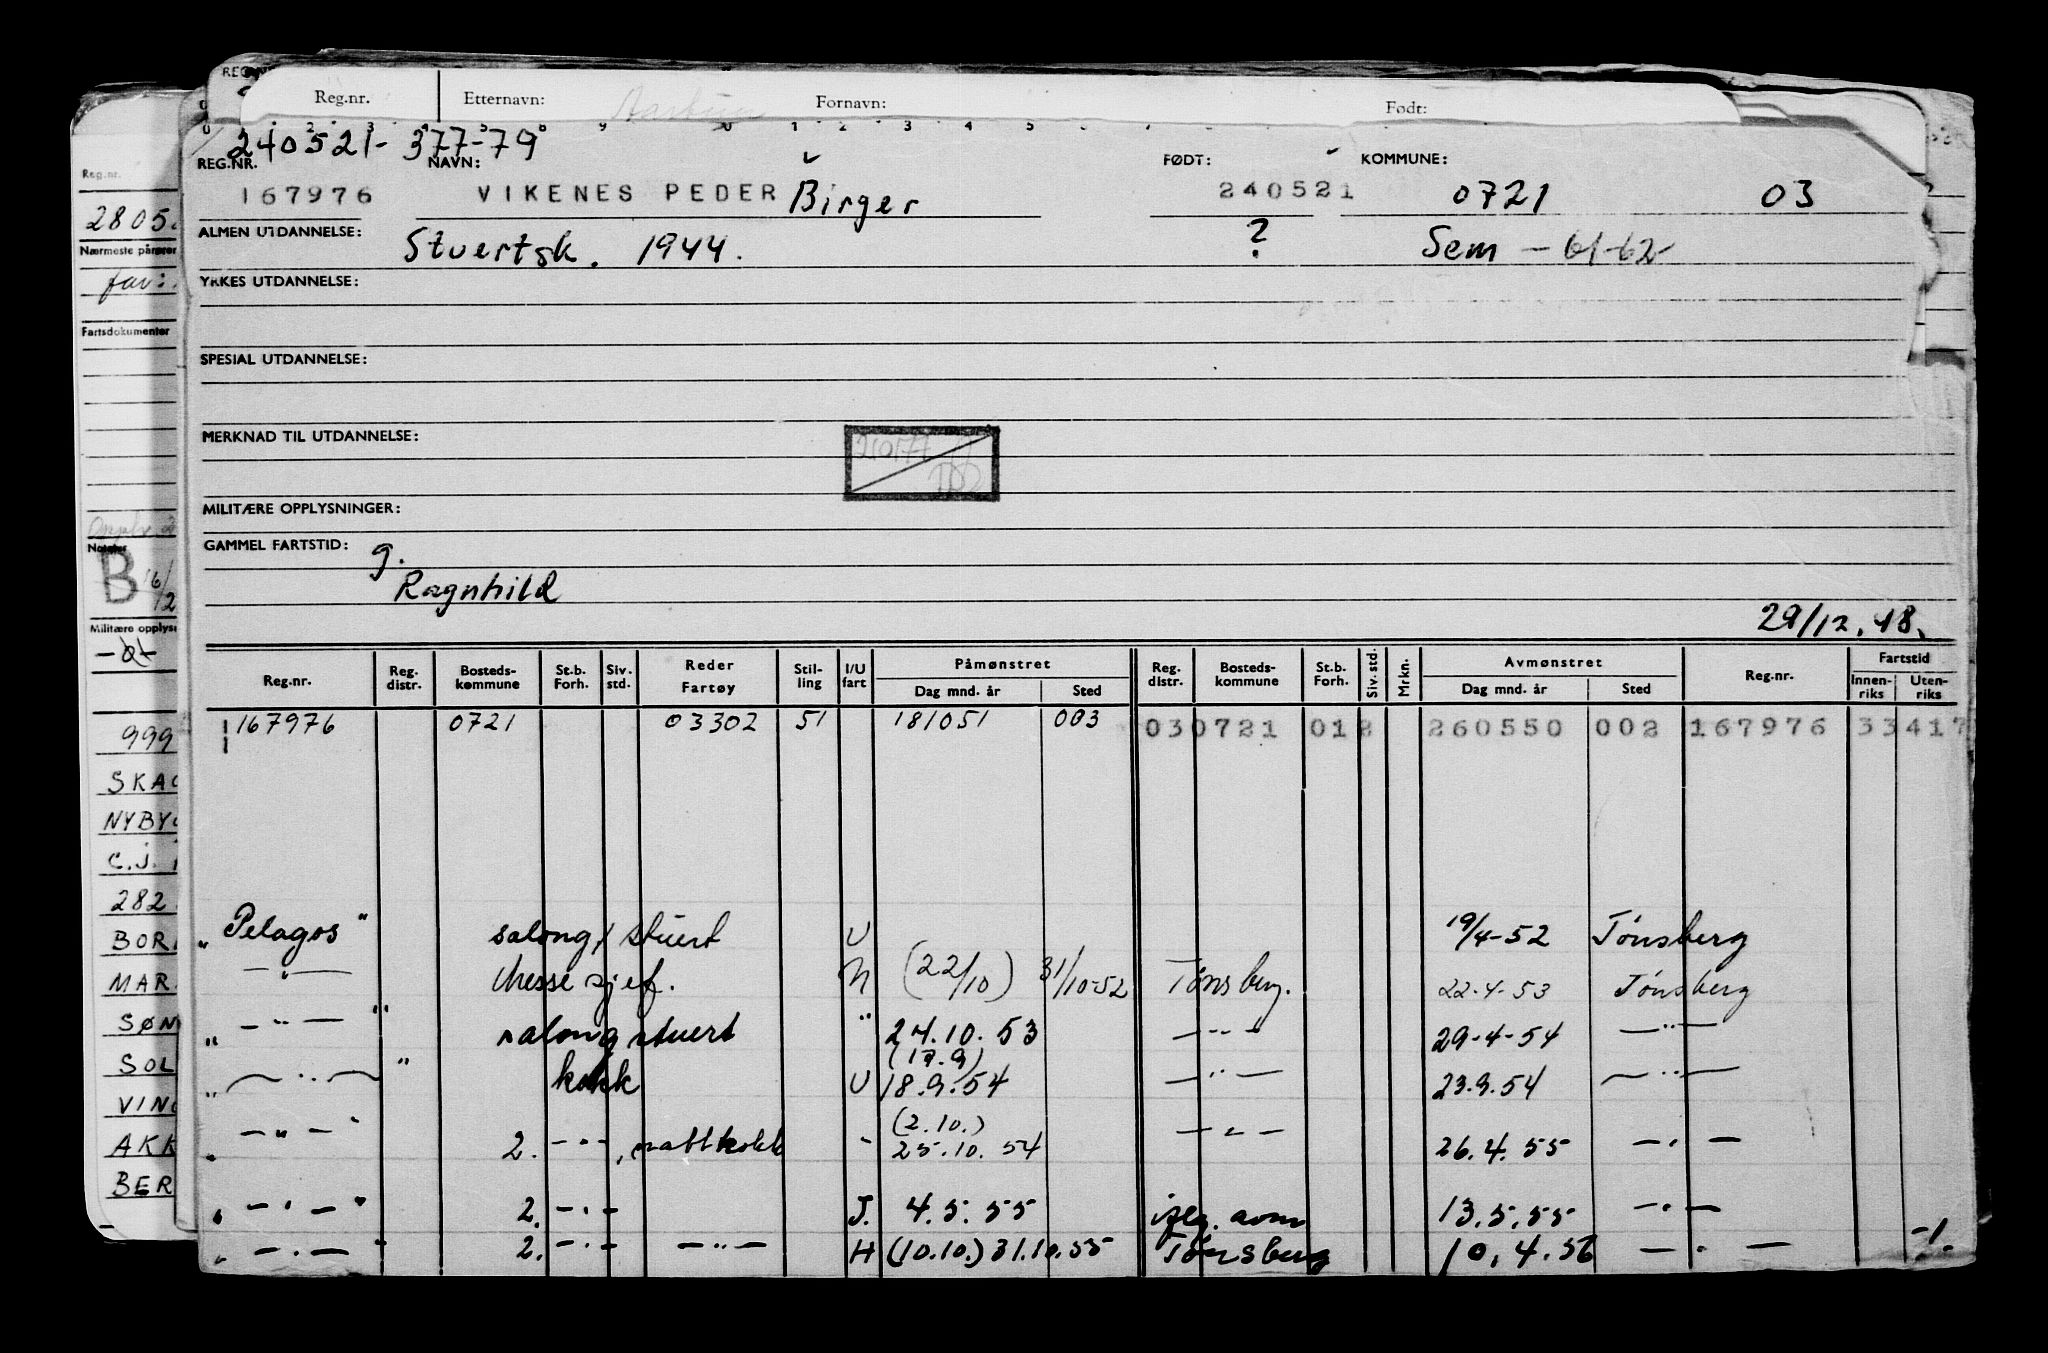 Reg.nr. Etternavn: Fornavn: Født:
240521-377-79
REG.NR. NAVN: FØDT: KOMMUNE:
167976 VIKENES PEDER Birger 240521 0721 03
ALMEN UTDANNELSE: Stuertsk. 1944. ? Sem - 61-62
YRKES UTDANNELSE:
SPESIAL UTDANNELSE:
MERKNAD TIL UTDANNELSE:
MILITÆRE OPPLYSNINGER:
GAMMEL FARTSTID: g.
Ragnhild
29/12.48.
Reg.nr. Reg. distr. Bosteds-kommune St.b. Forh. Siv. std. Reder Fartøy Stil-ling I/U fart Påmønstret Dag mnd. år Sted Reg. distr. Bosteds-kommune St.b. Forh. Siv. std. Mrkn. Avmønstret Dag mnd. år Sted Reg.nr. Fartstid Innen-riks Uten-riks
167976 0721 03302 51 181051 003 030721 012 260550 002 167976 33417
"Pelagos" salong stuert U 19/4-52 Tønsberg
— " — Messe sjef. N (22/10) 31/10-52 Tønsberg. 22-4-53 Tønsberg
" — " — " salong stuert " 24.10.53 — " — 29-4-54 — " —
(17.9)
" — " — " kokk U 18.9.54 — " — 23.9.54 — " —
(2.10.)
" — " — " 2. — " — , nattkokk " 25.10.54 — " — 26.4.55 — " —
" — " — " 2. — " — J. 4.5.55 13.5.55 — " —
" — " — " 2. — " — — " — H (10.10.) 31.10.55 Tønsberg 10.4.56 — " — -1-
Reg.nr.
2805
Nærmeste pårører
far:
Fartsdokumenter
Notater
B 16/12
Militære opplys
999
SKAG
NYBY
C.J.
282
BOR
MAR
SØN
SOL
VING
AKK
BER